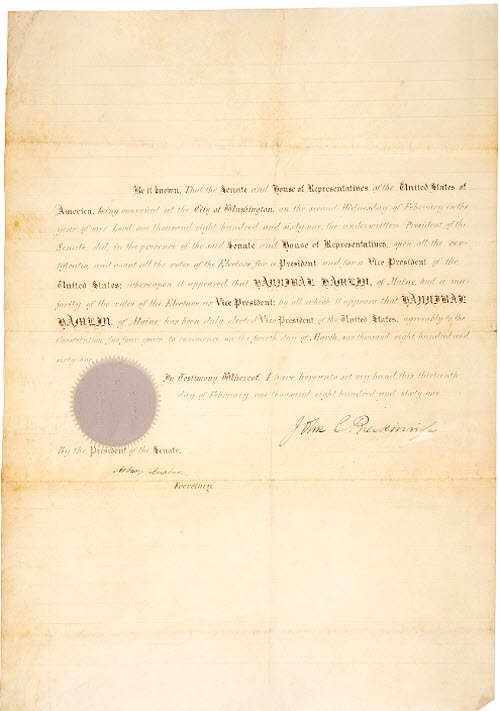 Be it known, That the Senate and House of Representatives of the United States of
America, being convened at the City of Washington, on the second Wednesday of February in the
year of our Lord one thousand eight hundred and sixty-one, the underwritten President of the
Senate did, in the presence of the said Senate and House of Representatives, open all the cer-
tificates and count all the votes of the Electors for a President and for a Vice President of the
United States; whereupon it appeared that HANNIBAL HAMLIN, of Maine, had a ma-
jority of the votes of the Electors as Vice President; by all which it appears that HANNIBAL
HAMLIN, of Maine has been duly elected Vice President of the United States, agreeably to the
Constitution, for four years to commence on the fourth day of March, one thousand eight hundred and
sixty-one.
In Testimony Whereof, I have hereunto set my hand, this thirteenth
day of February, one thousand eight hundred and sixty-one.
John C. Breckinridge
By the President of the Senate,
Secretary.